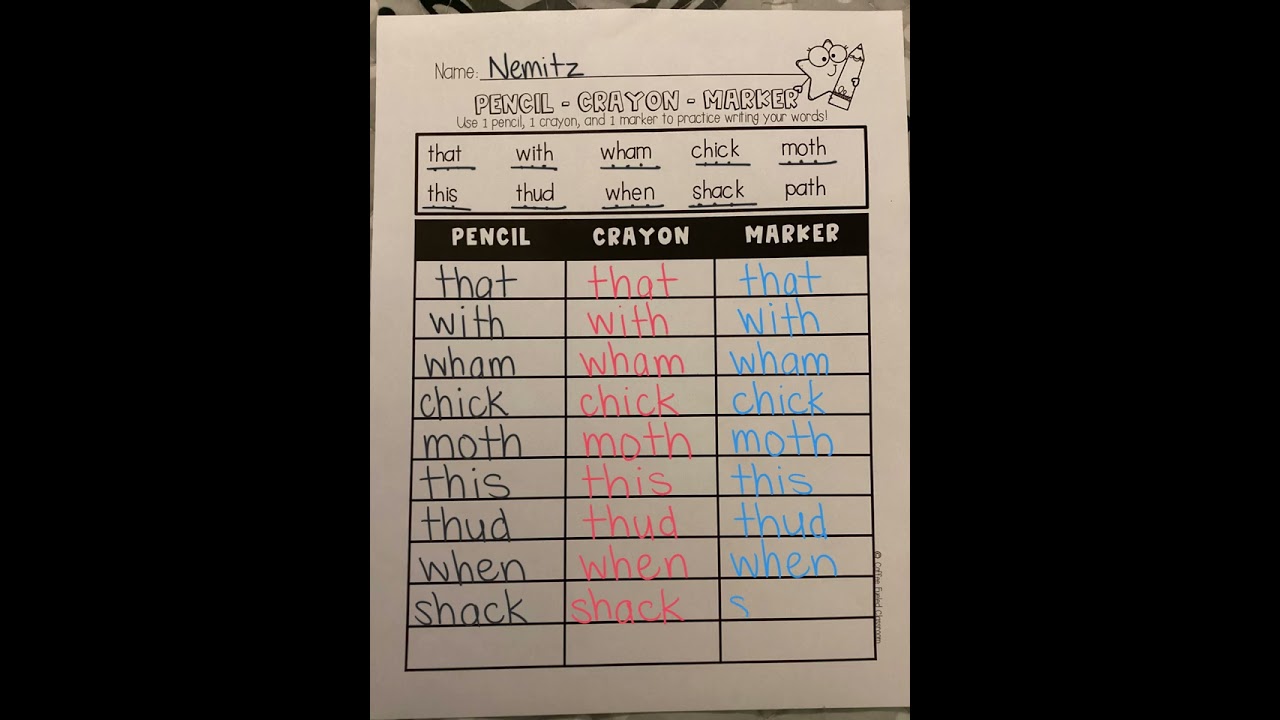 Name: Nemitz
PENCIL - CRAYON - MARKER
Use 1 pencil, 1 crayon, and 1 marker to practice writing your words!
that with wham chick moth
this thud when shack path
PENCIL CRAYON MARKER
that that that
with with with
wham wham wham
chick chick chick
moth moth moth
this this this
thud thud thud
when when when
shack shack s
© Coffee Fueled Classroom